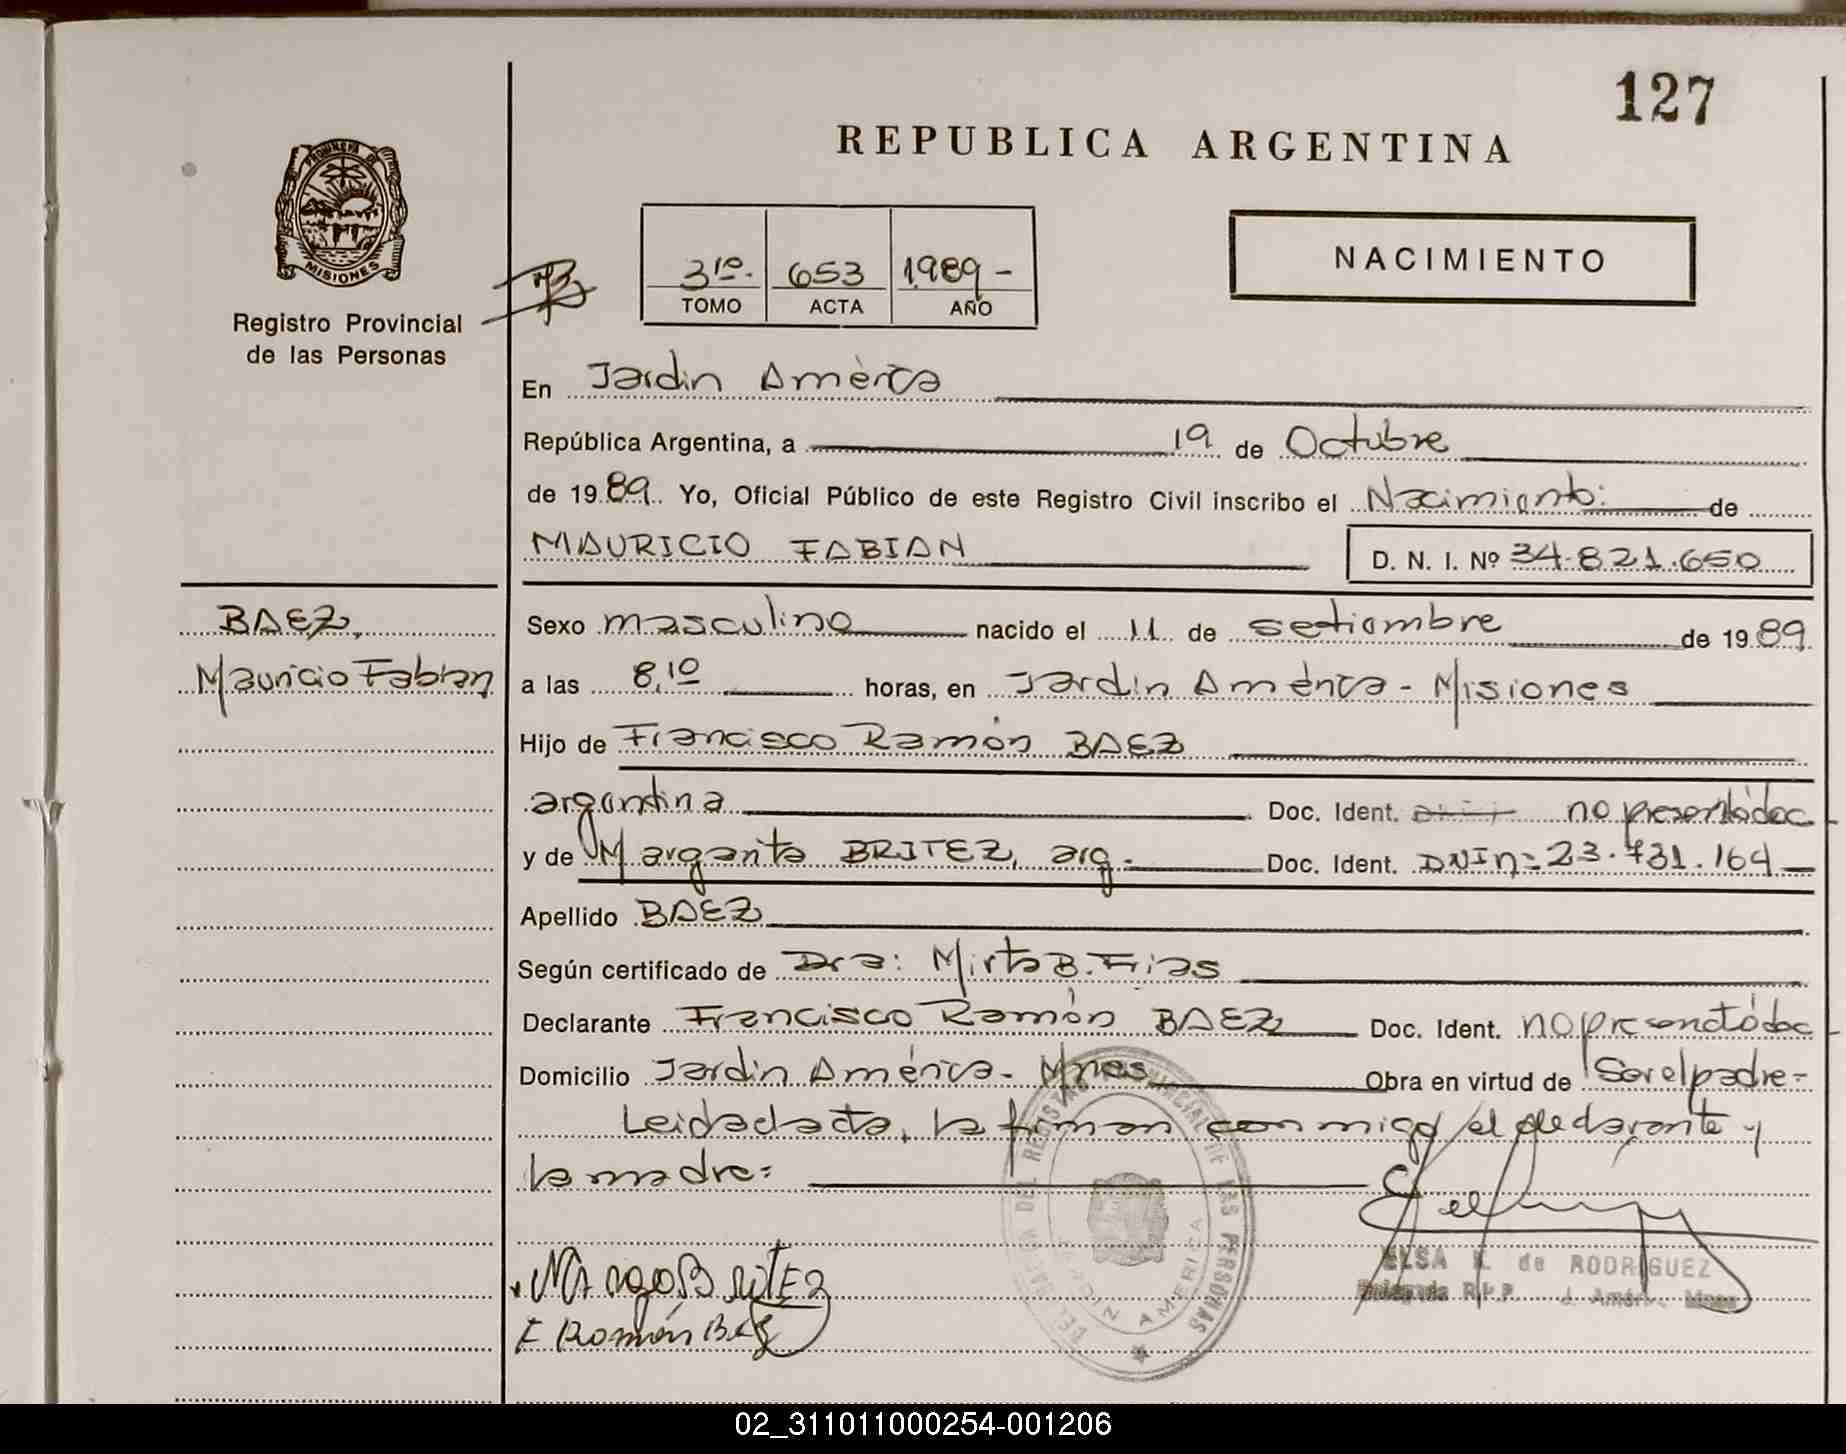 127
REPUBLICA ARGENTINA
PROVINCIA DE
MISIONES
Registro Provincial
de las Personas
3ro. 653 1989 -
TOMO ACTA AÑO
NACIMIENTO
En Jardin América
República Argentina, a 19 de Octubre
de 1989 Yo, Oficial Público de este Registro Civil inscribo el Nacimiento: de
MAURICIO FABIAN D. N. I. Nº 34.821.650
BAEZ,
Mauricio Fabian
Sexo masculino nacido el 11 de setiembre de 1989
a las 8,10 horas, en Jardin América - Misiones
Hijo de Francisco Ramón BAEZ
argentina Doc. Ident. no presentó doc
y de Margarita BRITEZ, arg. Doc. Ident. DNI n= 23.731.164
Apellido BAEZ
Según certificado de Dra: Mirta B. Frias
Declarante Francisco Ramón BAEZ Doc. Ident. no presentó doc
Domicilio Jardin América - Mnes Obra en virtud de Ser el padre =
Leida el acta, la firman conmigo el declarante y
la madre =
BRITEZ
F Román Baez
ELSA de RODRIGUEZ
Delegada R.P.P. J. Amér. Mnes
DEL REGISTRO PROVINCIAL DE LAS PERSONAS
JARDIN AMERICA
02_311011000254-001206